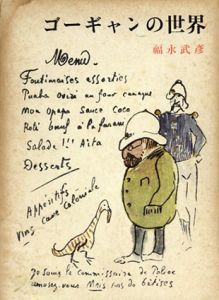 ゴーギャンの世界
福永武彦
Menu
Foutimaises assorties
Punha Oviri au four canaque
Mon Opapa Sauce Coco
Roti bœuf à la
Salade !!! Aita
Desserts
Apperitifs
Vins cave Coloniale
Je suis le Commissaire de Police
amusez-vous Mais pas de bêtises